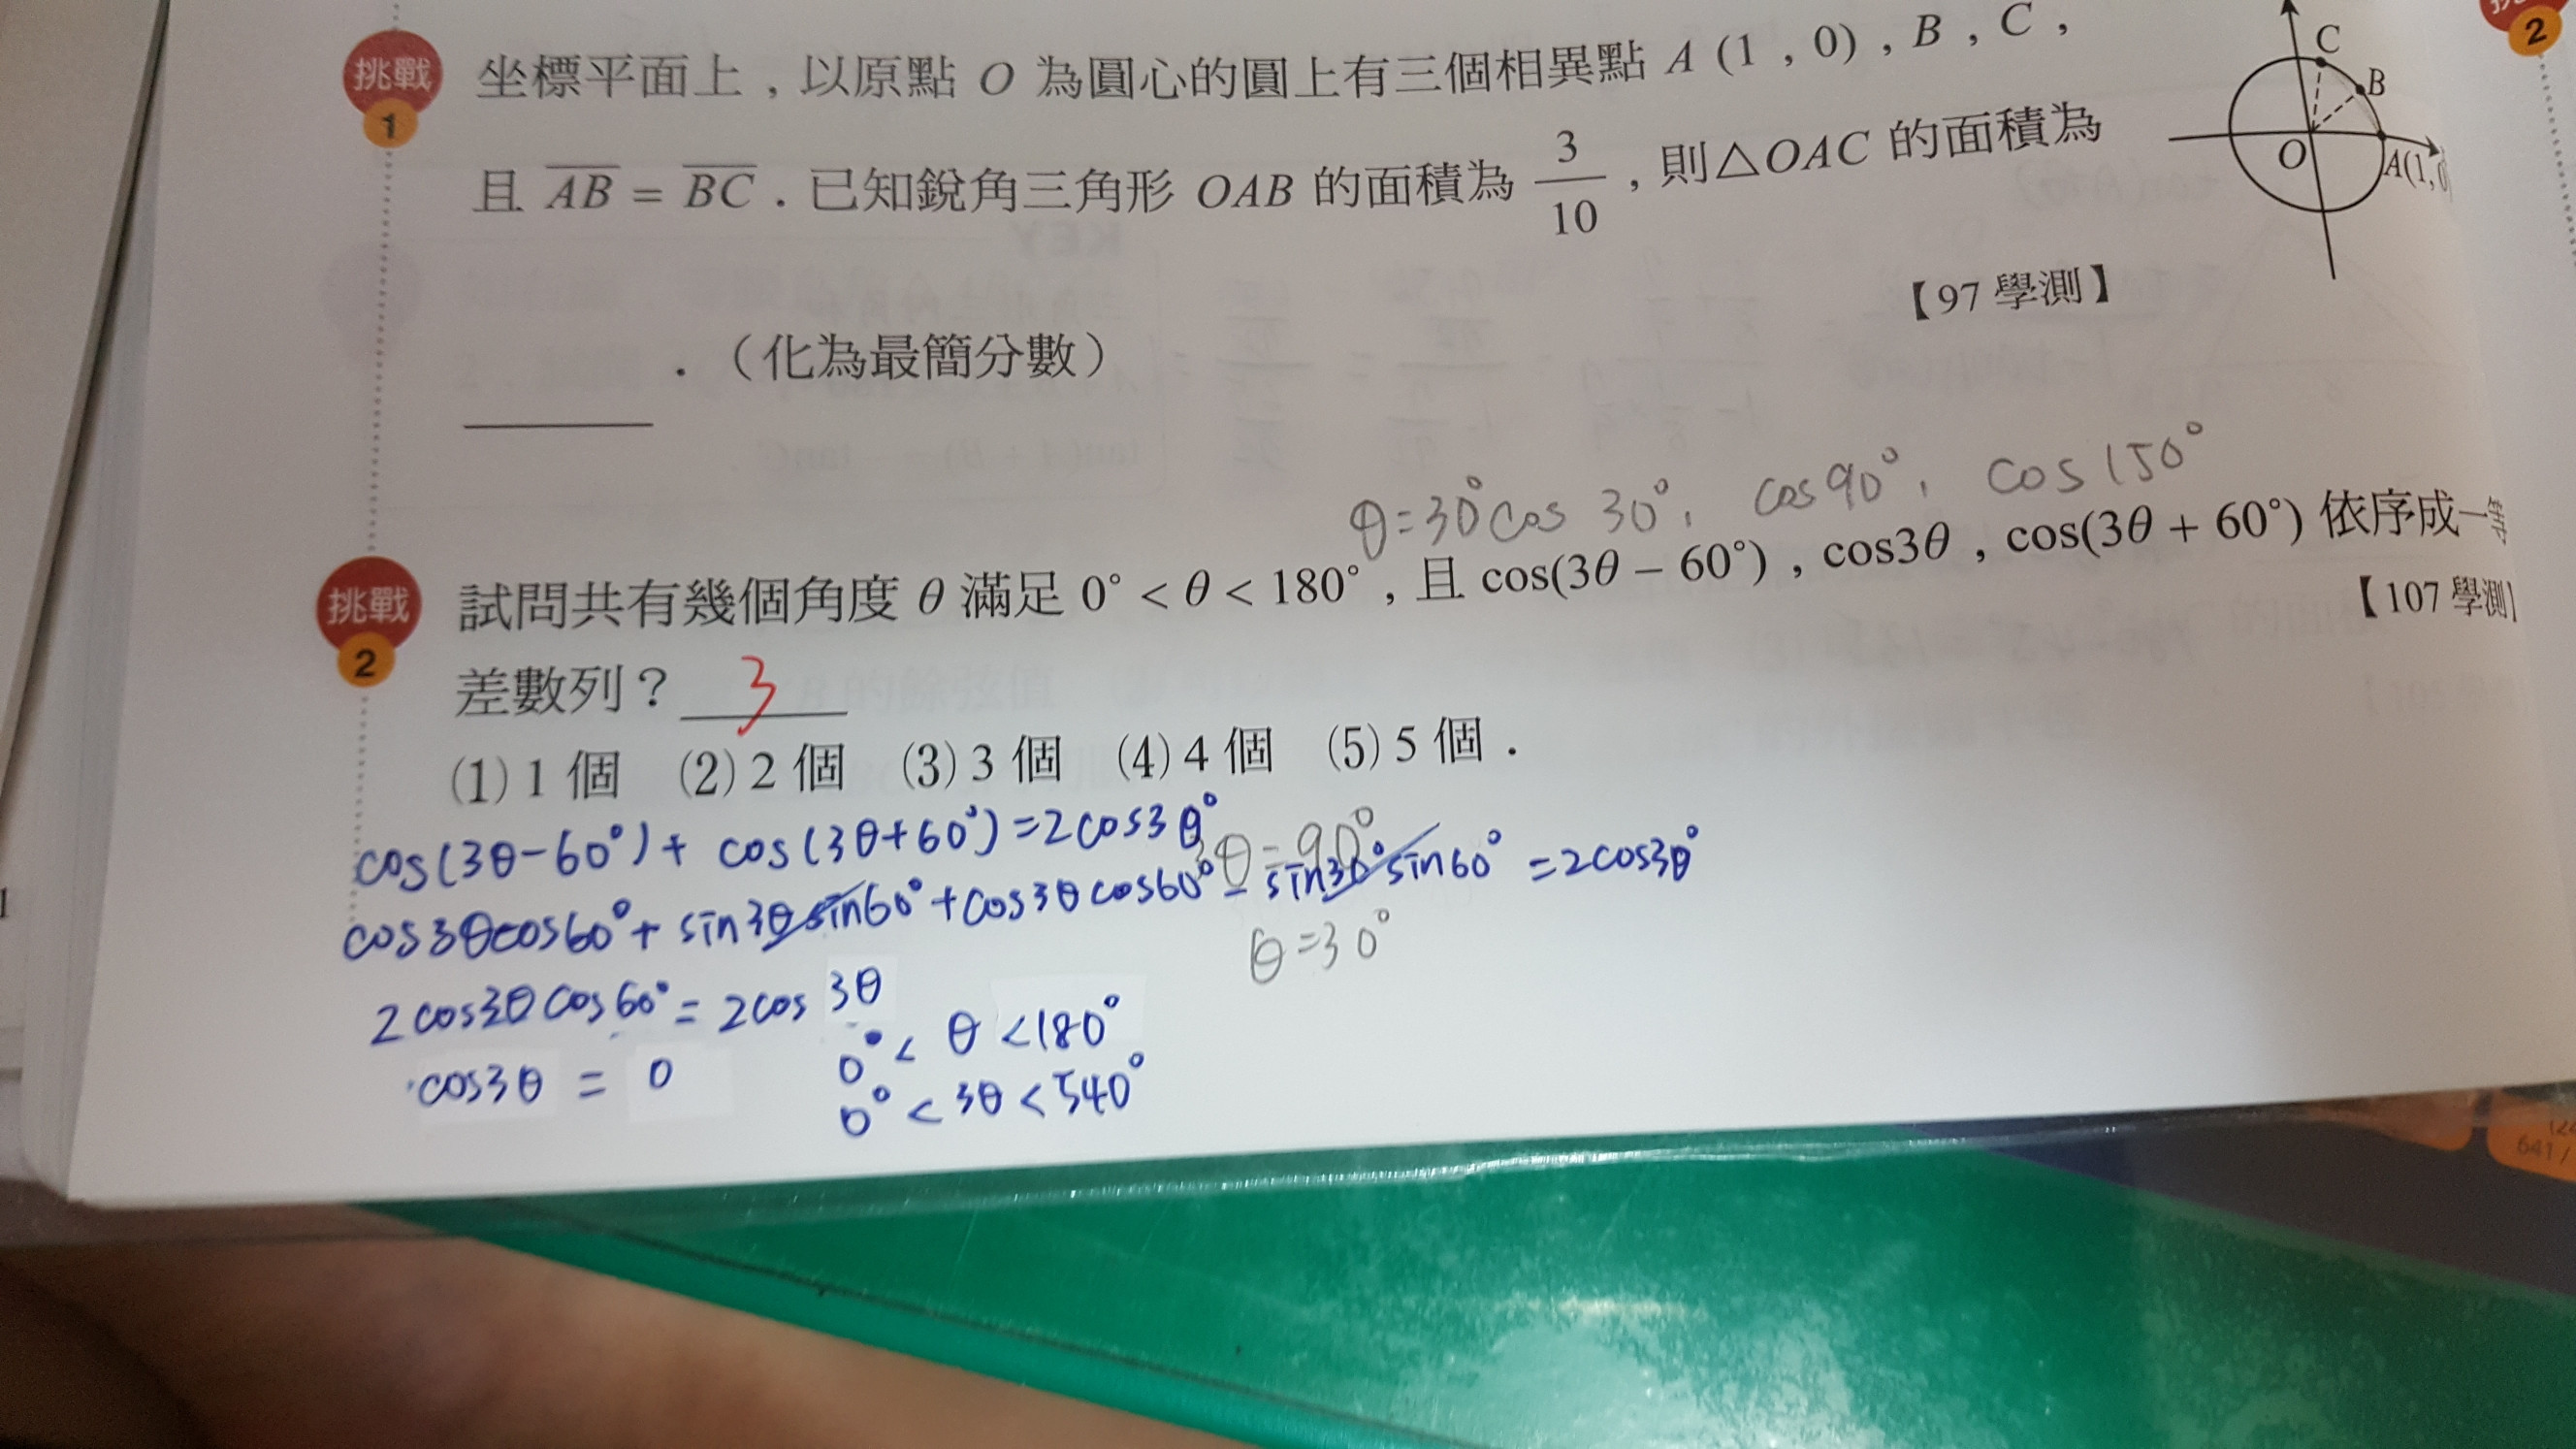 挑戰
1
坐標平面上，以原點 O 為圓心的圓上有三個相異點 A (1 , 0) , B , C ,
且 AB = BC . 已知銳角三角形 OAB 的面積為 3/10 , 則△OAC 的面積為
【97 學測】
. （化為最簡分數）
C
B
O
A(1,
2
θ=30° cos 30°, cos90°, cos150°
挑戰
2
試問共有幾個角度 θ 滿足 0° < θ < 180° , 且 cos(3θ − 60°) , cos3θ , cos(3θ + 60°) 依序成一等
【107 學測】
差數列？ 3
(1) 1 個 (2) 2 個 (3) 3 個 (4) 4 個 (5) 5 個 .
cos(3θ-60°)+ cos(3θ+60°)=2cos3θ°
3θ=90°
cos3θcos60°+ sin3θsin60°+cos3θcos60°- sin3θ°sin60° =2cos3θ°
θ=30°
2cos3θcos60°=2cos 3θ
0°< θ <180°
cos3θ = 0
0° < 3θ < 540°
641 /